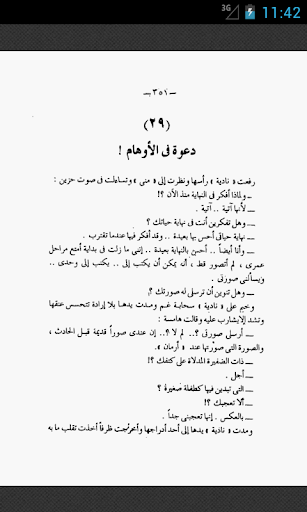 3G 11:42
— ٣٥١ —
(٢٩)
دعوة فى الأوهام !
رفعت « نادية » رأسها ونظرت إلى « منى » وتساءلت فى صوت حزين :
ــ ولماذا أفكر فى النهاية منذ الآن ؟!
ــ لأنها آتية .. آتية .
ــ وهل تفكرين أنت فى نهاية حياتك ؟
ــ نهاية حياتى أحس بها بعيدة .. وقد أفكر فيها عندما تقترب .
ــ وأنا أيضاً .. أحسن بالنهاية بعيدة .. إننى ما زلت فى بداية أمتع مراحل
عمرى ، لم أتصور قط ، أنه يمكن أن يكتب إلى .. يكتب إلى وحدى ..
ويسألنى صورتى .
ــ وهل تنوين أن ترسلى له صورتك ؟!
وخيم على « نادية » سحابة غم ومدت يدها بلا إرادة تتحسس عنقها
وتشد الإيشارب عليه وقالت هامسة :
ــ أرسلى صورتى ؟.. لم لا ؟.. إن عندى صوراً قديمة قبل الحادث ،
والصورة التى صوّرتها عند « أرمان » .
ــ ذات الضفيرة المدلاة على كتفك ؟!
ــ أجل .
ــ التى تبدين فيها كطفلة صغيرة ؟!
ــ ألا تعجبك ؟!
ــ بالعكس . إنها تعجبنى جداً .
ومدت « نادية » يدها إلى أحد أدراجها وأخرجت ظرفاً أخذت تقلب ما به